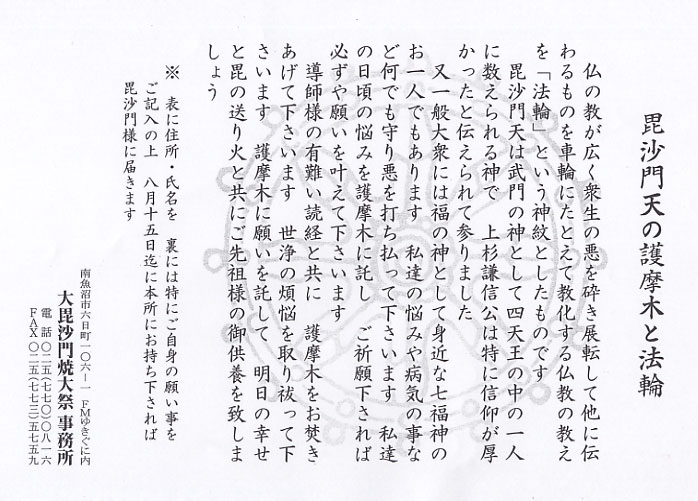 毘沙門天の護摩木と法輪
仏の教が広く衆生の悪を砕き展転して他に伝
わるものを車輪にたとえて教化する仏教の教え
を「法輪」という神紋としたものです
毘沙門天は武門の神として四天王の中の一人
に数えられる神で　上杉謙信公は特に信仰が厚
かったと伝えられて参りました
又一般大衆には福の神として身近な七福神の
お一人でもあります　私達の悩みや病気の事な
ど何でも守り悪を打ち払って下さいます　私達
の日頃の悩みを護摩木に託し　ご祈願下されば
必ずや願いを叶えて下さいます
導師様の有難い読経と共に　護摩木をお焚き
あげて下さいます　世浄の煩悩を取り祓って下
さいます　護摩木に願いを託して　明日の幸せ
と毘の送り火と共にご先祖様の御供養を致しま
しょう
※　表に住所・氏名を　裏には特にご自身の願い事を
ご記入の上　八月十五日迄に本所にお持ち下されば
毘沙門様に届きます
南魚沼市六日町一〇六ー一　FMゆきぐに内
大毘沙門焼大祭 事務所
電話〇二五(七七〇)〇八一六
FAX〇二五(七七三)五七五九